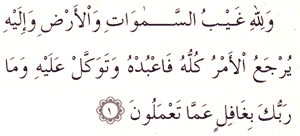 وَلِلَّهِ غَيْبُ السَّمَٰوَاتِ وَالْأَرْضِ وَإِلَيْهِ
يُرْجَعُ الْأَمْرُ كُلُّهُ فَاعْبُدْهُ وَتَوَكَّلْ عَلَيْهِ وَمَا
رَبُّكَ بِغَافِلٍ عَمَّا تَعْمَلُونَ ١